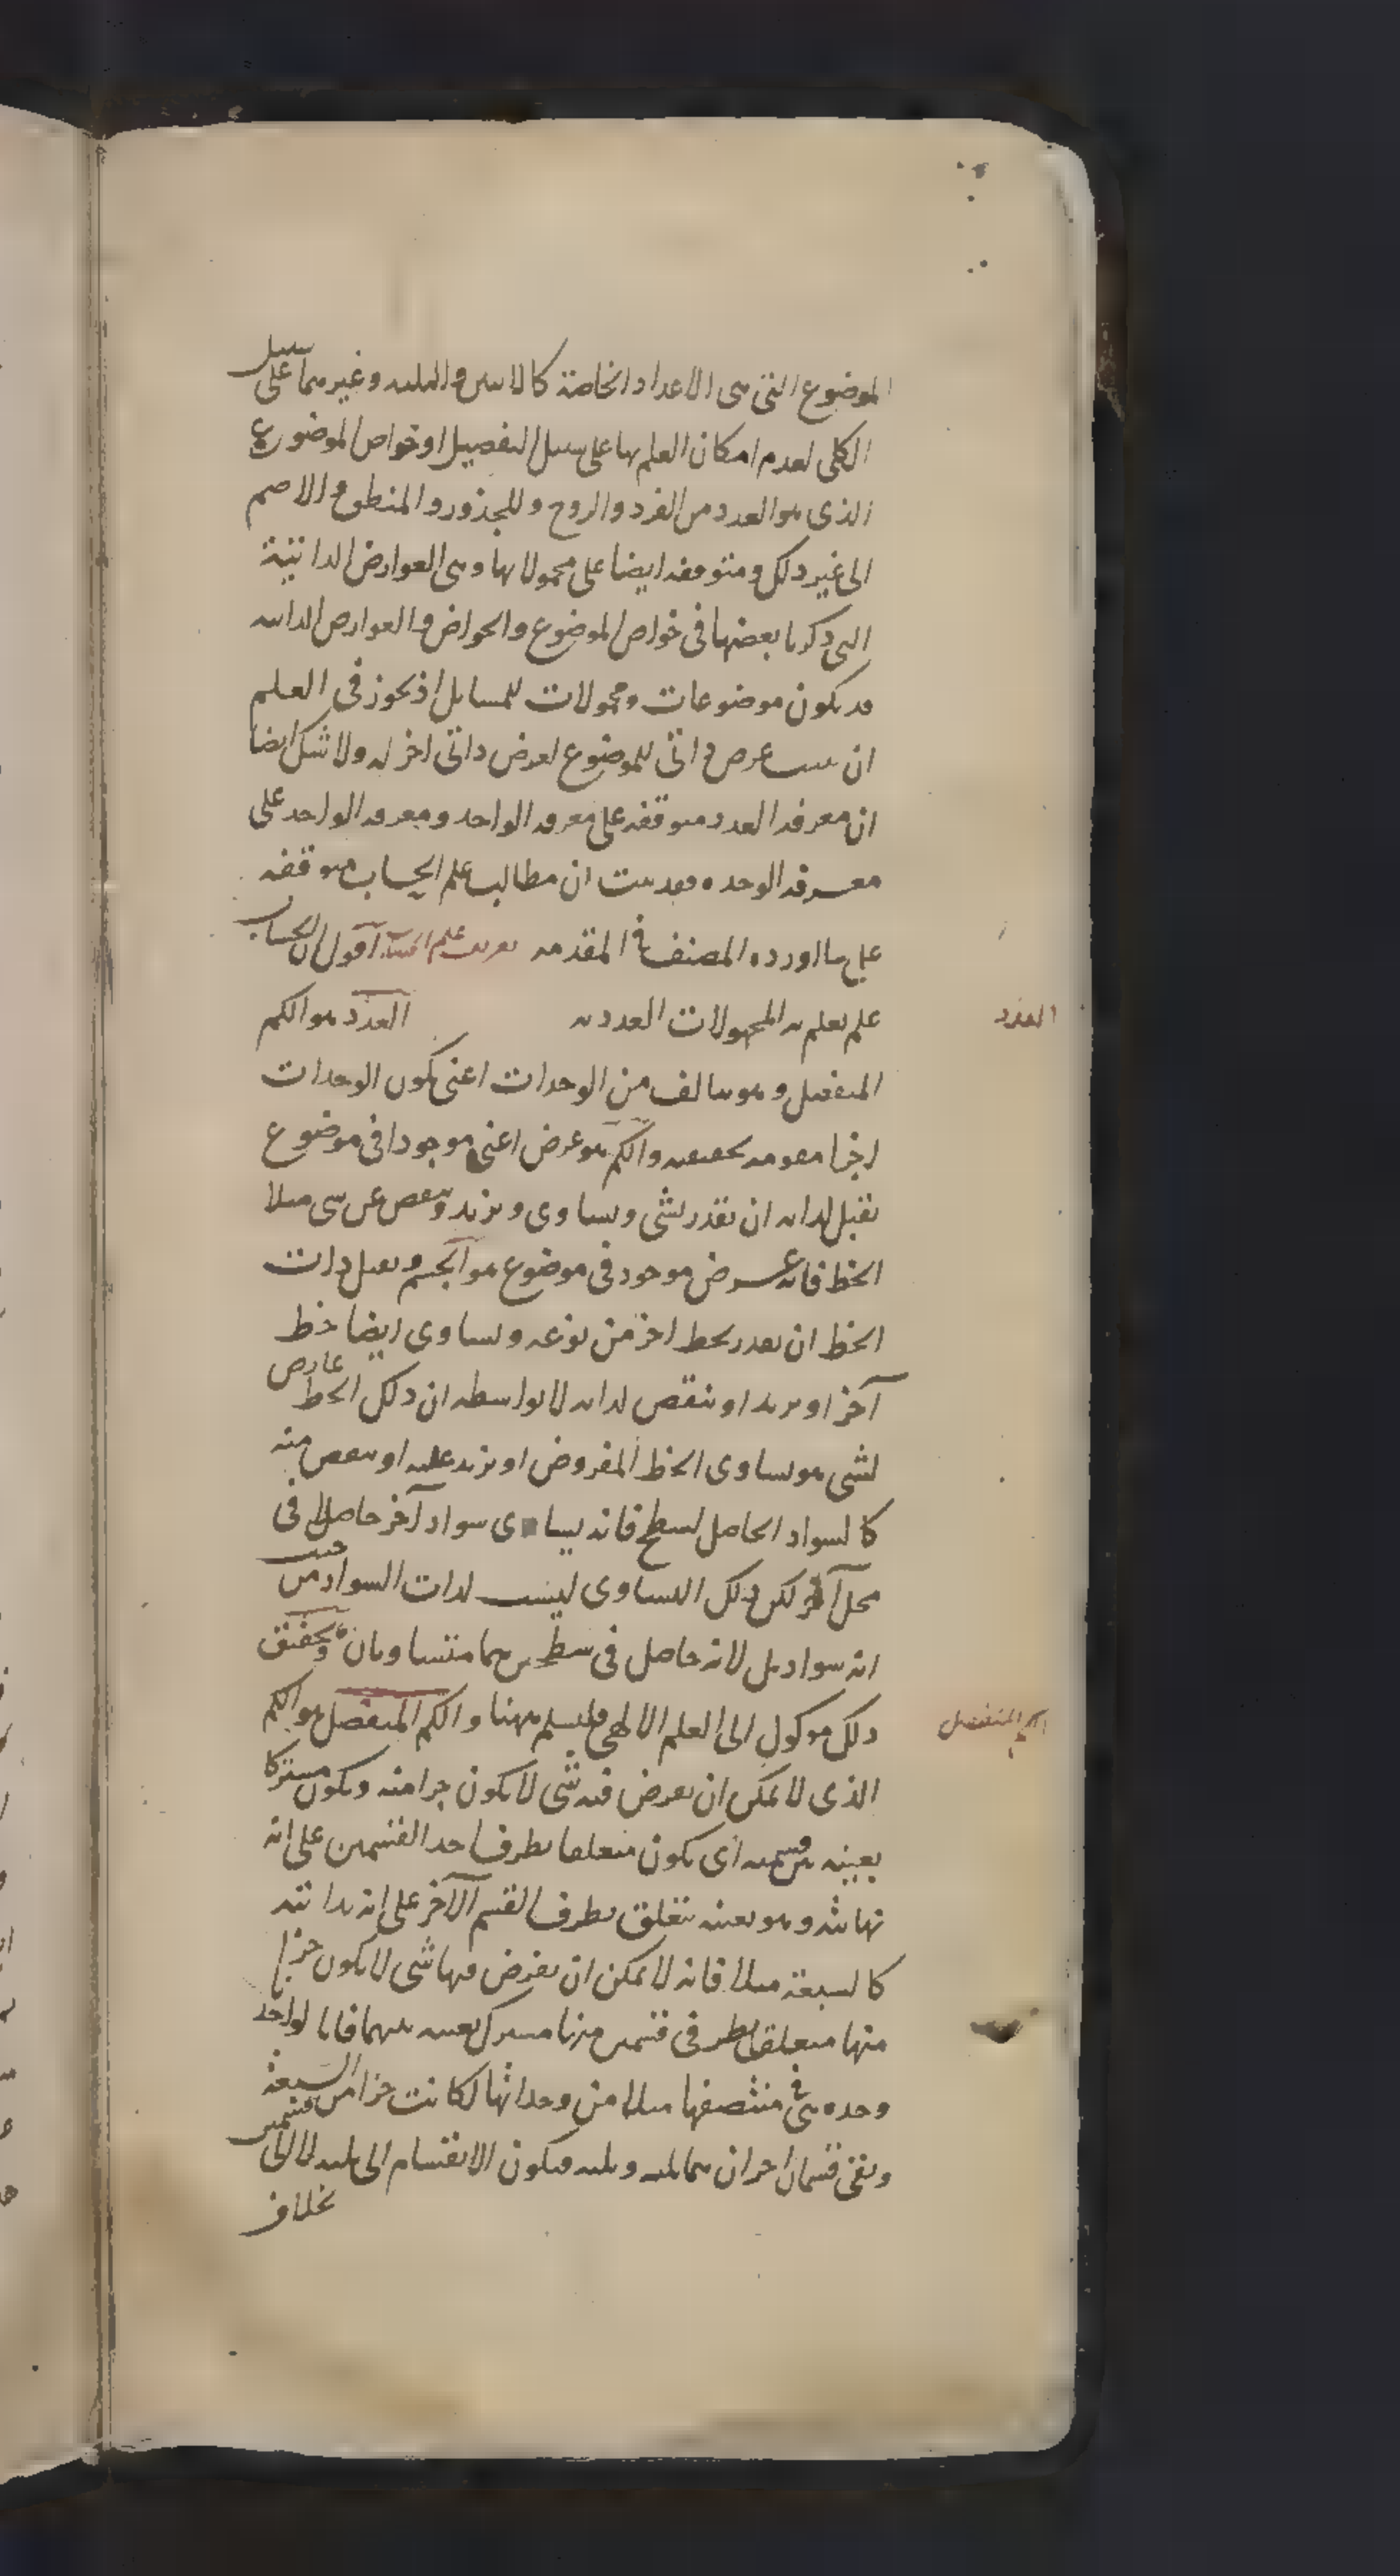 الموضوع التى هى الاعداد الخاصة كالاثنين والثلثه وغيرهما على سبيل
الكلى لعدم امكان العلم بها على سبيل التفصيل او خواص الموضوع
الذى هو العدد من الفرد والزوج والمجذور والمنطق والاصم
الى غير ذلك ومتوقفه ايضا على محمولاتها وهى العوارض الذاتية
التى ذكرنا بعضها فى خواص الموضوع والخواص والعوارض الذاتيه
قد يكون موضوعات ومحمولات للمسايل اذ يجوز فى العلم
ان يثبت عرض ذاتى للموضوع لعرض ذاتى اخر له ولا شك ايضا
ان معرفه العدد متوقفه على معرفه الواحد ومعرفه الواحد على
معرفه الوحده فقد ثبت ان مطالب علم الحساب متوقفه
على ما اورده المصنف فى المقدمه تعريف علم الحساب اقول ان الحساب
علم يعلم به المجهولات العدديه العدد هو الكم
العدد
المنفصل وهو يتالف من الوحدات اعنى يكون الوحدات
اجزا مقومه لحقيقته والكم هو عرض اعنى موجودا فى موضوع
يقبل لذاته ان يقدر بشى ويساوى ويزيد وينقص عن شى مثلا
الخط فانه عرض موجود فى موضوع هو الجسم ويقبل ذات
الخط ان يقدر بخط اخر من نوعه ويساوى ايضا خط
آخر او يزيد او ينقص لذاته لا بواسطه ان ذلك الخط عارض
لشى هو يساوى الخط المفروض او يزيد عليه او ينقص منه
كالسواد الحاصل لسطح فانه يساوى سواد آخر حاصلا فى
محل آخر لكن ذلك التساوى ليست لذات السواد من حيث
انه سواد بل لانه حاصل فى سطحين هما متساويان وتحقيق
ذلك موكول الى العلم الالهى فليسلم ههنا والكم المنفصل هو الكم
الكم المنفصل
الذى لا يمكن ان يفرض فيه شى لا يكون جزا منه ويكون مشتركا
بعينه بين قسميه اى يكون متعلقا بطرف احد القسمين على انه
نهايته وهو بعينه يتعلق بطرف القسم الآخر على انه بدايته
كالسبعة مثلا فانه لا يمكن ان يفرض فيها شى لا يكون جزا
منها متعلقا بطرفى قسمين منها مشترك بعينه بينهما فانا لو اخذ
وحده فى منتصفها مثلا من وحداتها لكانت جزا من السبعة
وبقى قسمان اخران هما ثلثه وثلثه فيكون الانقسام الى ثلثه لا الى قسمين
بخلاف